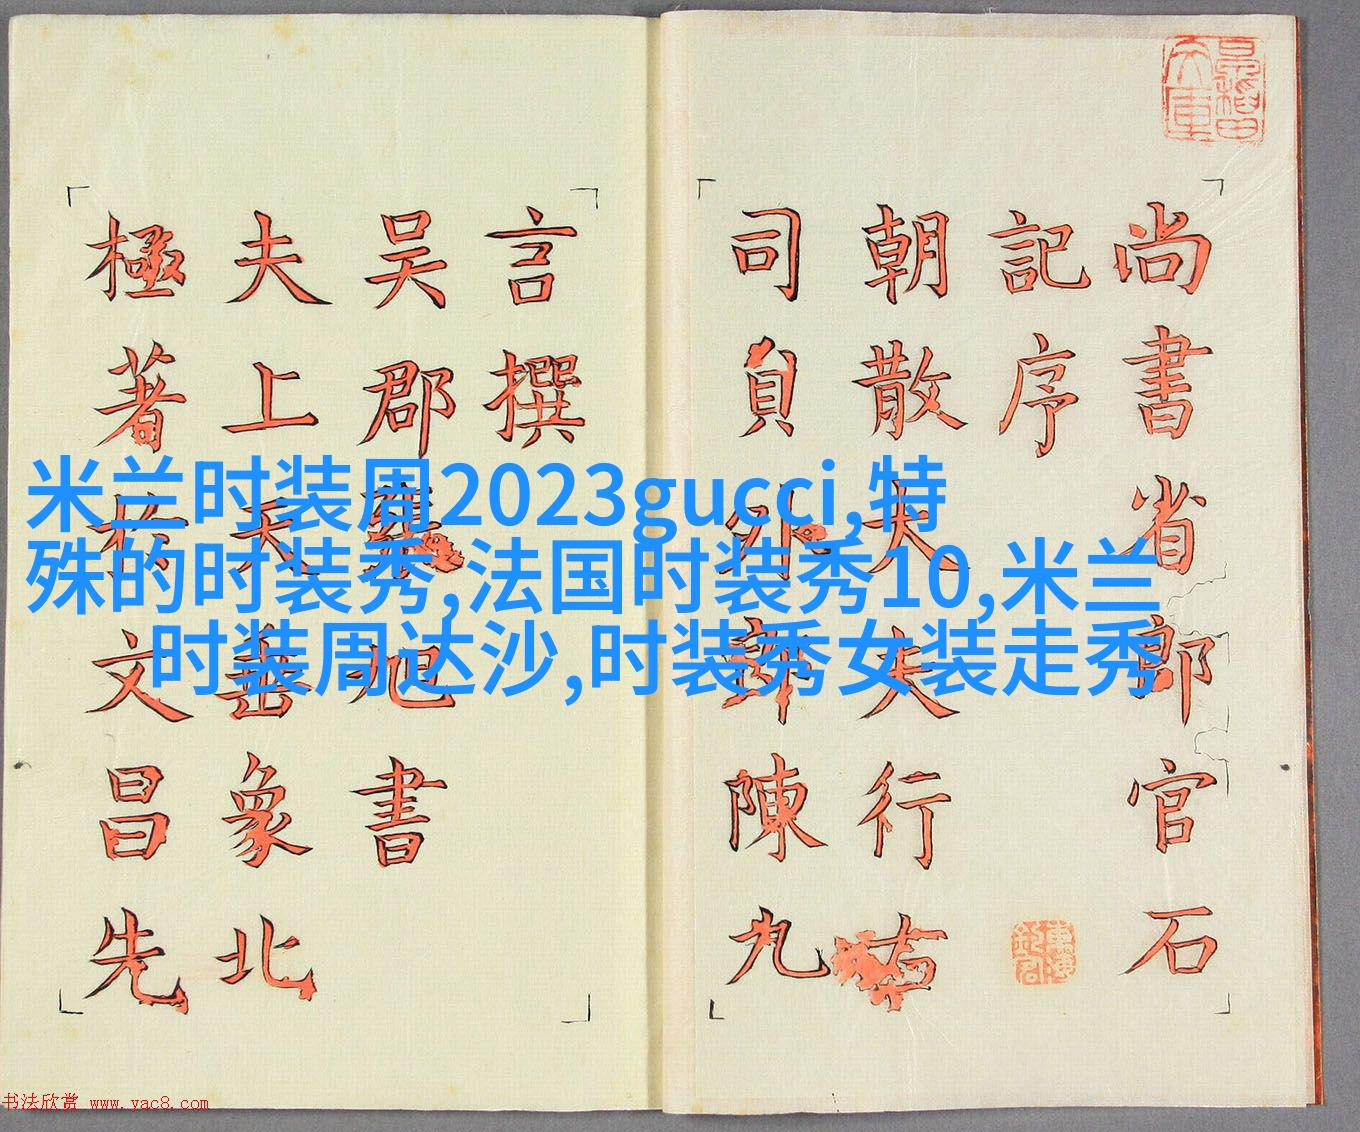 尚書省郎官石
記序
朝散大夫行右
司負外郎陳九
言撰
吴郡張旭書
夫上天垂象北
極著於文昌先
米兰时装周2023gucci,特
殊的时装秀,法国时装秀10,米兰
时装周达沙,时装秀女装走秀
书法欣赏 www.yac8.com